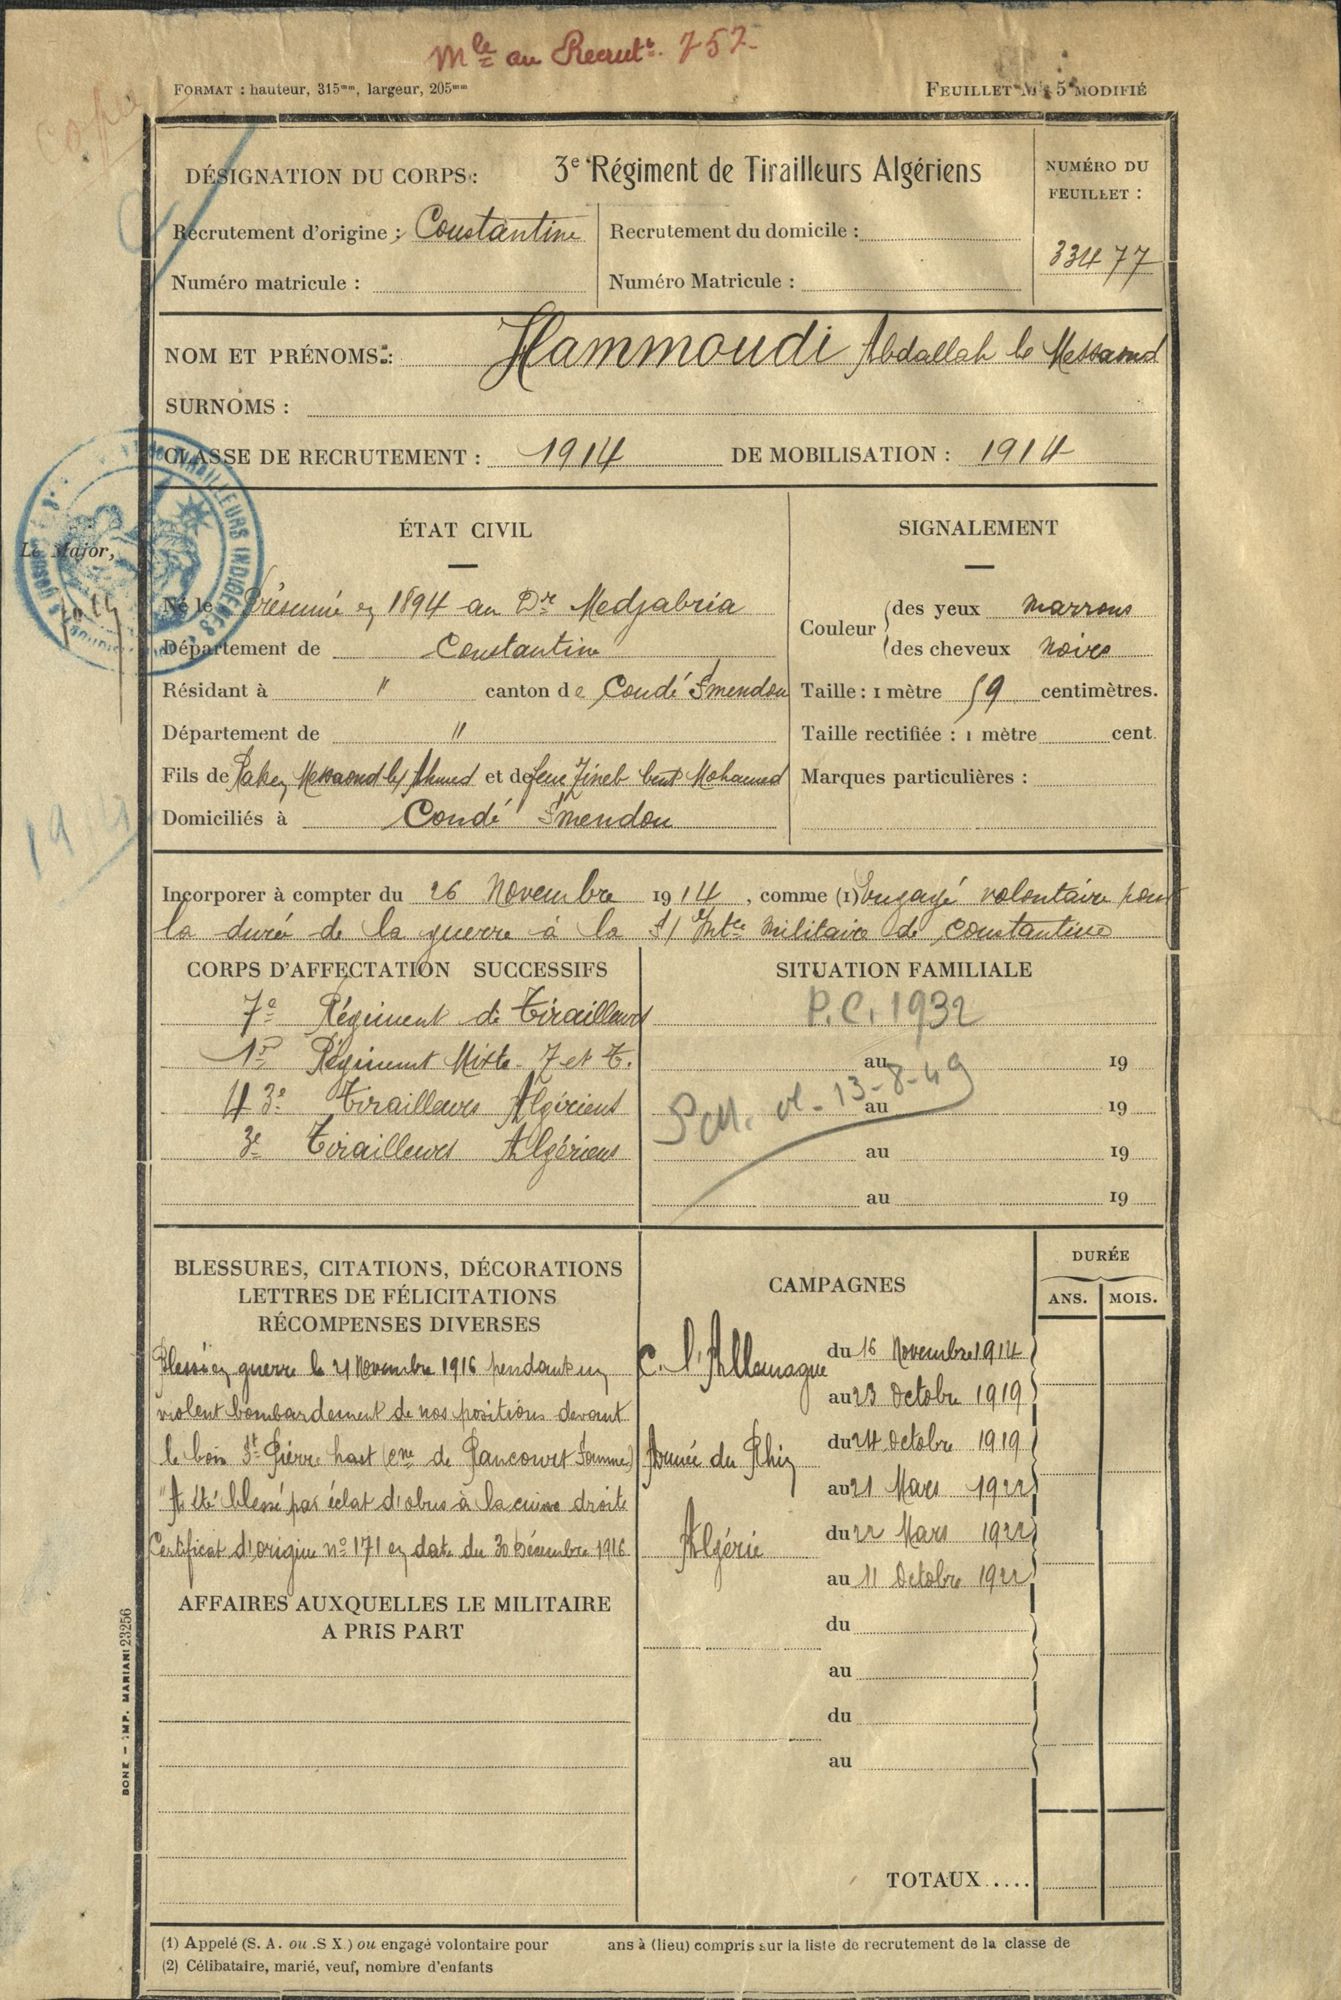 Mle au Recrutt. 757
FORMAT : hauteur, 315mm, largeur, 205mm
FEUILLET No 5 MODIFIÉ
Copie
DÉSIGNATION DU CORPS : 3e Régiment de Tirailleurs Algériens
NUMÉRO DU
FEUILLET :
33477
Recrutement d'origine : Constantine
Recrutement du domicile :
Numéro matricule :
Numéro Matricule :
NOM ET PRÉNOMS : Hammoudi Abdallah b Messaoud
SURNOMS :
CLASSE DE RECRUTEMENT : 1914 DE MOBILISATION : 1914
TIRAILLEURS INDIGÈNES
Le Major,
ÉTAT CIVIL
Né le Présumé en 1894 au Dr Medjabria
Département de Constantine
Résidant à " canton de Condé Smendou
Département de "
Fils de Messaoud ben Ahmed et de feue Zineb bent Mohamed
Domiciliés à Condé Smendou
SIGNALEMENT
Couleur des yeux marrons
des cheveux noirs
Taille : 1 mètre 59 centimètres.
Taille rectifiée : 1 mètre cent.
Marques particulières :
1914
Incorporer à compter du 26 Novembre 1914, comme (1) Engagé volontaire pour
la durée de la guerre à la S/ Intce Militaire de Constantine
CORPS D'AFFECTATION SUCCESSIFS
7e Régiment de Tirailleurs
1er Régiment Mixte Z et T.
43e Tirailleurs Algériens
3e Tirailleurs Algériens
SITUATION FAMILIALE
P.C. 1932
au 19
13-8-49
au 19
au 19
au 19
BLESSURES, CITATIONS, DÉCORATIONS
LETTRES DE FÉLICITATIONS
RÉCOMPENSES DIVERSES
Blessé en guerre le 21 Novembre 1916 pendant un
violent bombardement de nos positions devant
le bois St Pierre hast (cne de Rancourt Somme)
"A été blessé par éclat d'obus à la cuisse droite
Certificat d'origine no 171 en date du 30 Décembre 1916
AFFAIRES AUXQUELLES LE MILITAIRE
A PRIS PART
CAMPAGNES
DURÉE
ANS. MOIS.
C. l'Allemagne du 16 Novembre 1914
au 23 Octobre 1919
Armée du Rhin du 24 Octobre 1919
au 21 Mars 1922
Algérie du 22 Mars 1922
au 11 Octobre 1922
du
au
du
au
TOTAUX ....
BONE – IMP. MARIANI 23256
(1) Appelé (S. A. ou .S X.) ou engagé volontaire pour ans à (lieu) compris sur la liste de recrutement de la classe de
(2) Célibataire, marié, veuf, nombre d'enfants